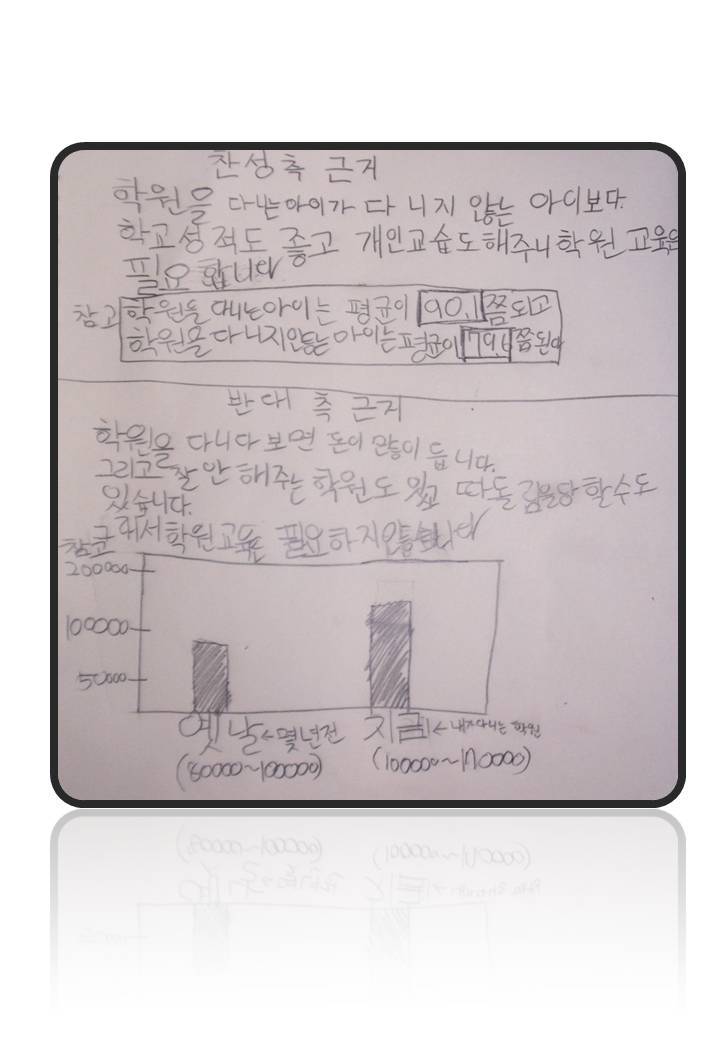 찬성측 근거
학원을 다니는아이가 다니지 않는 아이보다
학교성적도 좋고 개인교습도해주니학원교육은
필요합니다
참고 학원을 다니는아이는 평균이 90.1쯤되고
학원을다니지않는아이는평균이 79.6쯤된다
반대 측 근거
학원을 다니다 보면 돈이 많이 듭니다.
그리고 잘 안 해주는 학원도 있고 따돌림을당할수도
있습니다.
그래서학원교육은 필요하지않습니다
참고
200000
100000
50000
옛날←몇년전 지금←내가다니는 학원
(80000~100000) (100000~170000)